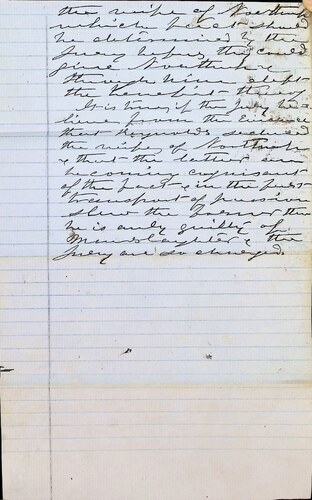 the wife of Northrup
which fact should
be determined by the
Jury before they could
give Northrup
through him also
the benefit thereof
It is true, if the Jury be-
lieve from the Evidence
that Reynolds seduced
the wife of Northrup
& that the latter on
becoming cognizant
of the fact & in the first
transport of passion
slew the former then
he is only guilty of
Manslaughter & the
Jury are so charged.